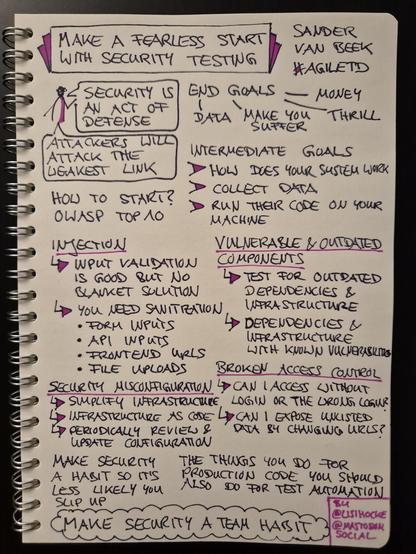 MAKE A FEARLESS START
WITH SECURITY TESTING
SANDER
VAN BEEK
#AGILETD
SECURITY IS
AN ACT OF
DEFENSE
ATTACKERS WILL
ATTACK THE
WEAKEST LINK
END GOALS
MONEY
DATA
MAKE YOU
SUFFER
THRILL
INTERMEDIATE GOALS
HOW DOES YOUR SYSTEM WORK
COLLECT DATA
RUN THEIR CODE ON YOUR
MACHINE
HOW TO START?
OWASP TOP 10
INJECTION
INPUT VALIDATION
IS GOOD BUT NO
BLANKET SOLUTION
YOU NEED SANITIZATION
• FORM INPUTS
• API INPUTS
• FRONTEND URLS
• FILE UPLOADS
VULNERABLE & OUTDATED
COMPONENTS
TEST FOR OUTDATED
DEPENDENCIES &
INFRASTRUCTURE
DEPENDENCIES &
INFRASTRUCTURE
WITH KNOWN VULNERABILITIES
SECURITY MISCONFIGURATION
SIMPLIFY INFRASTRUCTURE
INFRASTRUCTURE AS CODE
PERIODICALLY REVIEW &
UPDATE CONFIGURATION
BROKEN ACCESS CONTROL
CAN I ACCESS WITHOUT
LOGIN OR THE WRONG LOGIN?
CAN I EXPOSE UNLISTED
DATA BY CHANGING URLS?
MAKE SECURITY
A HABIT SO IT'S
LESS LIKELY YOU
SLIP UP
THE THINGS YOU DO FOR
PRODUCTION CODE YOU SHOULD
ALSO DO FOR TEST AUTOMATION
MAKE SECURITY A TEAM HABIT
BY
@LISIHOCKE
@MASTODON
SOCIAL